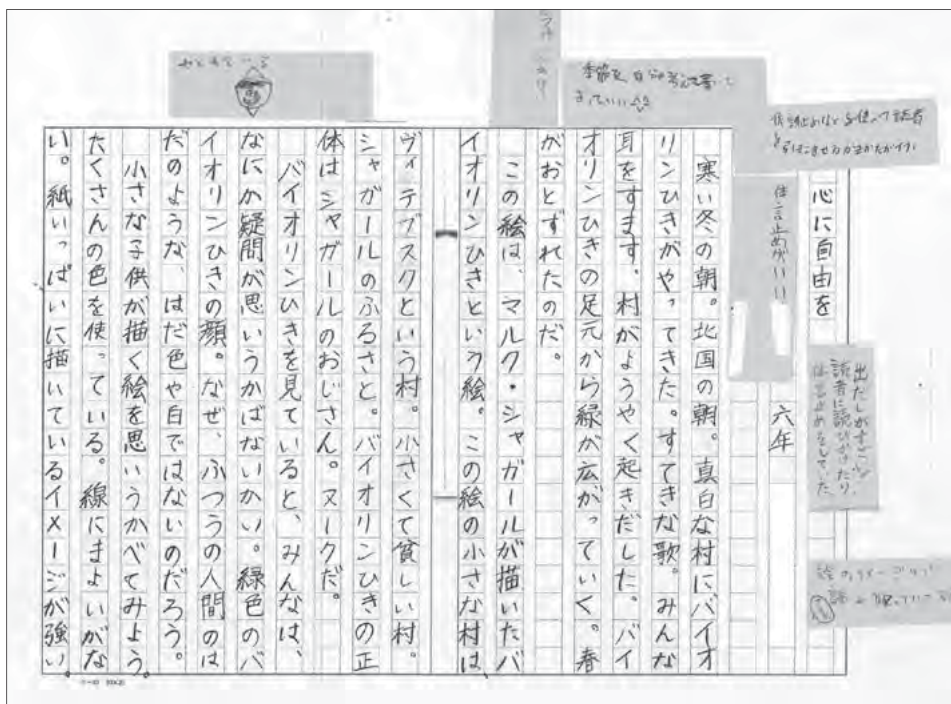 心に自由を
六年
寒い冬の朝。北国の朝。真白な村にバイオ
リンひきがやってきた。すてきな歌。みんな
耳をすます。村がようやく起きだした。バイ
オリンひきの足元から緑が広がっていく。春
がおとずれたのだ。
この絵は、マルク・シャガールが描いたバ
イオリンひきという絵。この絵の小さな村は、
ヴィテブスクという村。小さくて貧しい村。
シャガールのふるさと。バイオリンひきの正
体はシャガールのおじさん。ヌークだ。
バイオリンひきを見ていると、みんなは、
なにか疑問が思いうかばないかい。緑色のバ
イオリンひきの顔。なぜ、ふつうの人間のは
だのような、はだ色や白ではないのだろう。
小さな子供が描く絵を思いうかべてみよう。
たくさんの色を使っている。線にまよいがな
い。紙いっぱいに描いているイメージが強い。
出だしがすごい
読者に読びかけたり、
体言止めをしていた
体言止めがいい
体言止めなどを使って読者